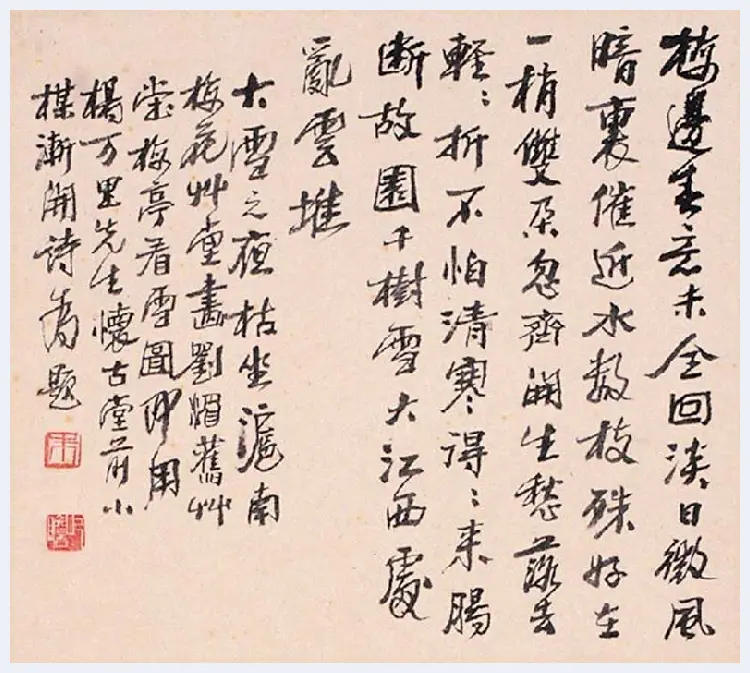 梅邊春意未全回淡日微風
暗裏催近水數枝殊好在
一梢雙朵忽齊開生愁落去
輕〻折不怕清寒得〻來腸
斷故園千樹雪大江西處
亂雲堆
大雪之夜枯坐滬南
梅花艸堂畫劉舊艸
堂梅亭看雪圖即用
楊万里先生懷古堂前小
楳漸開詩為題